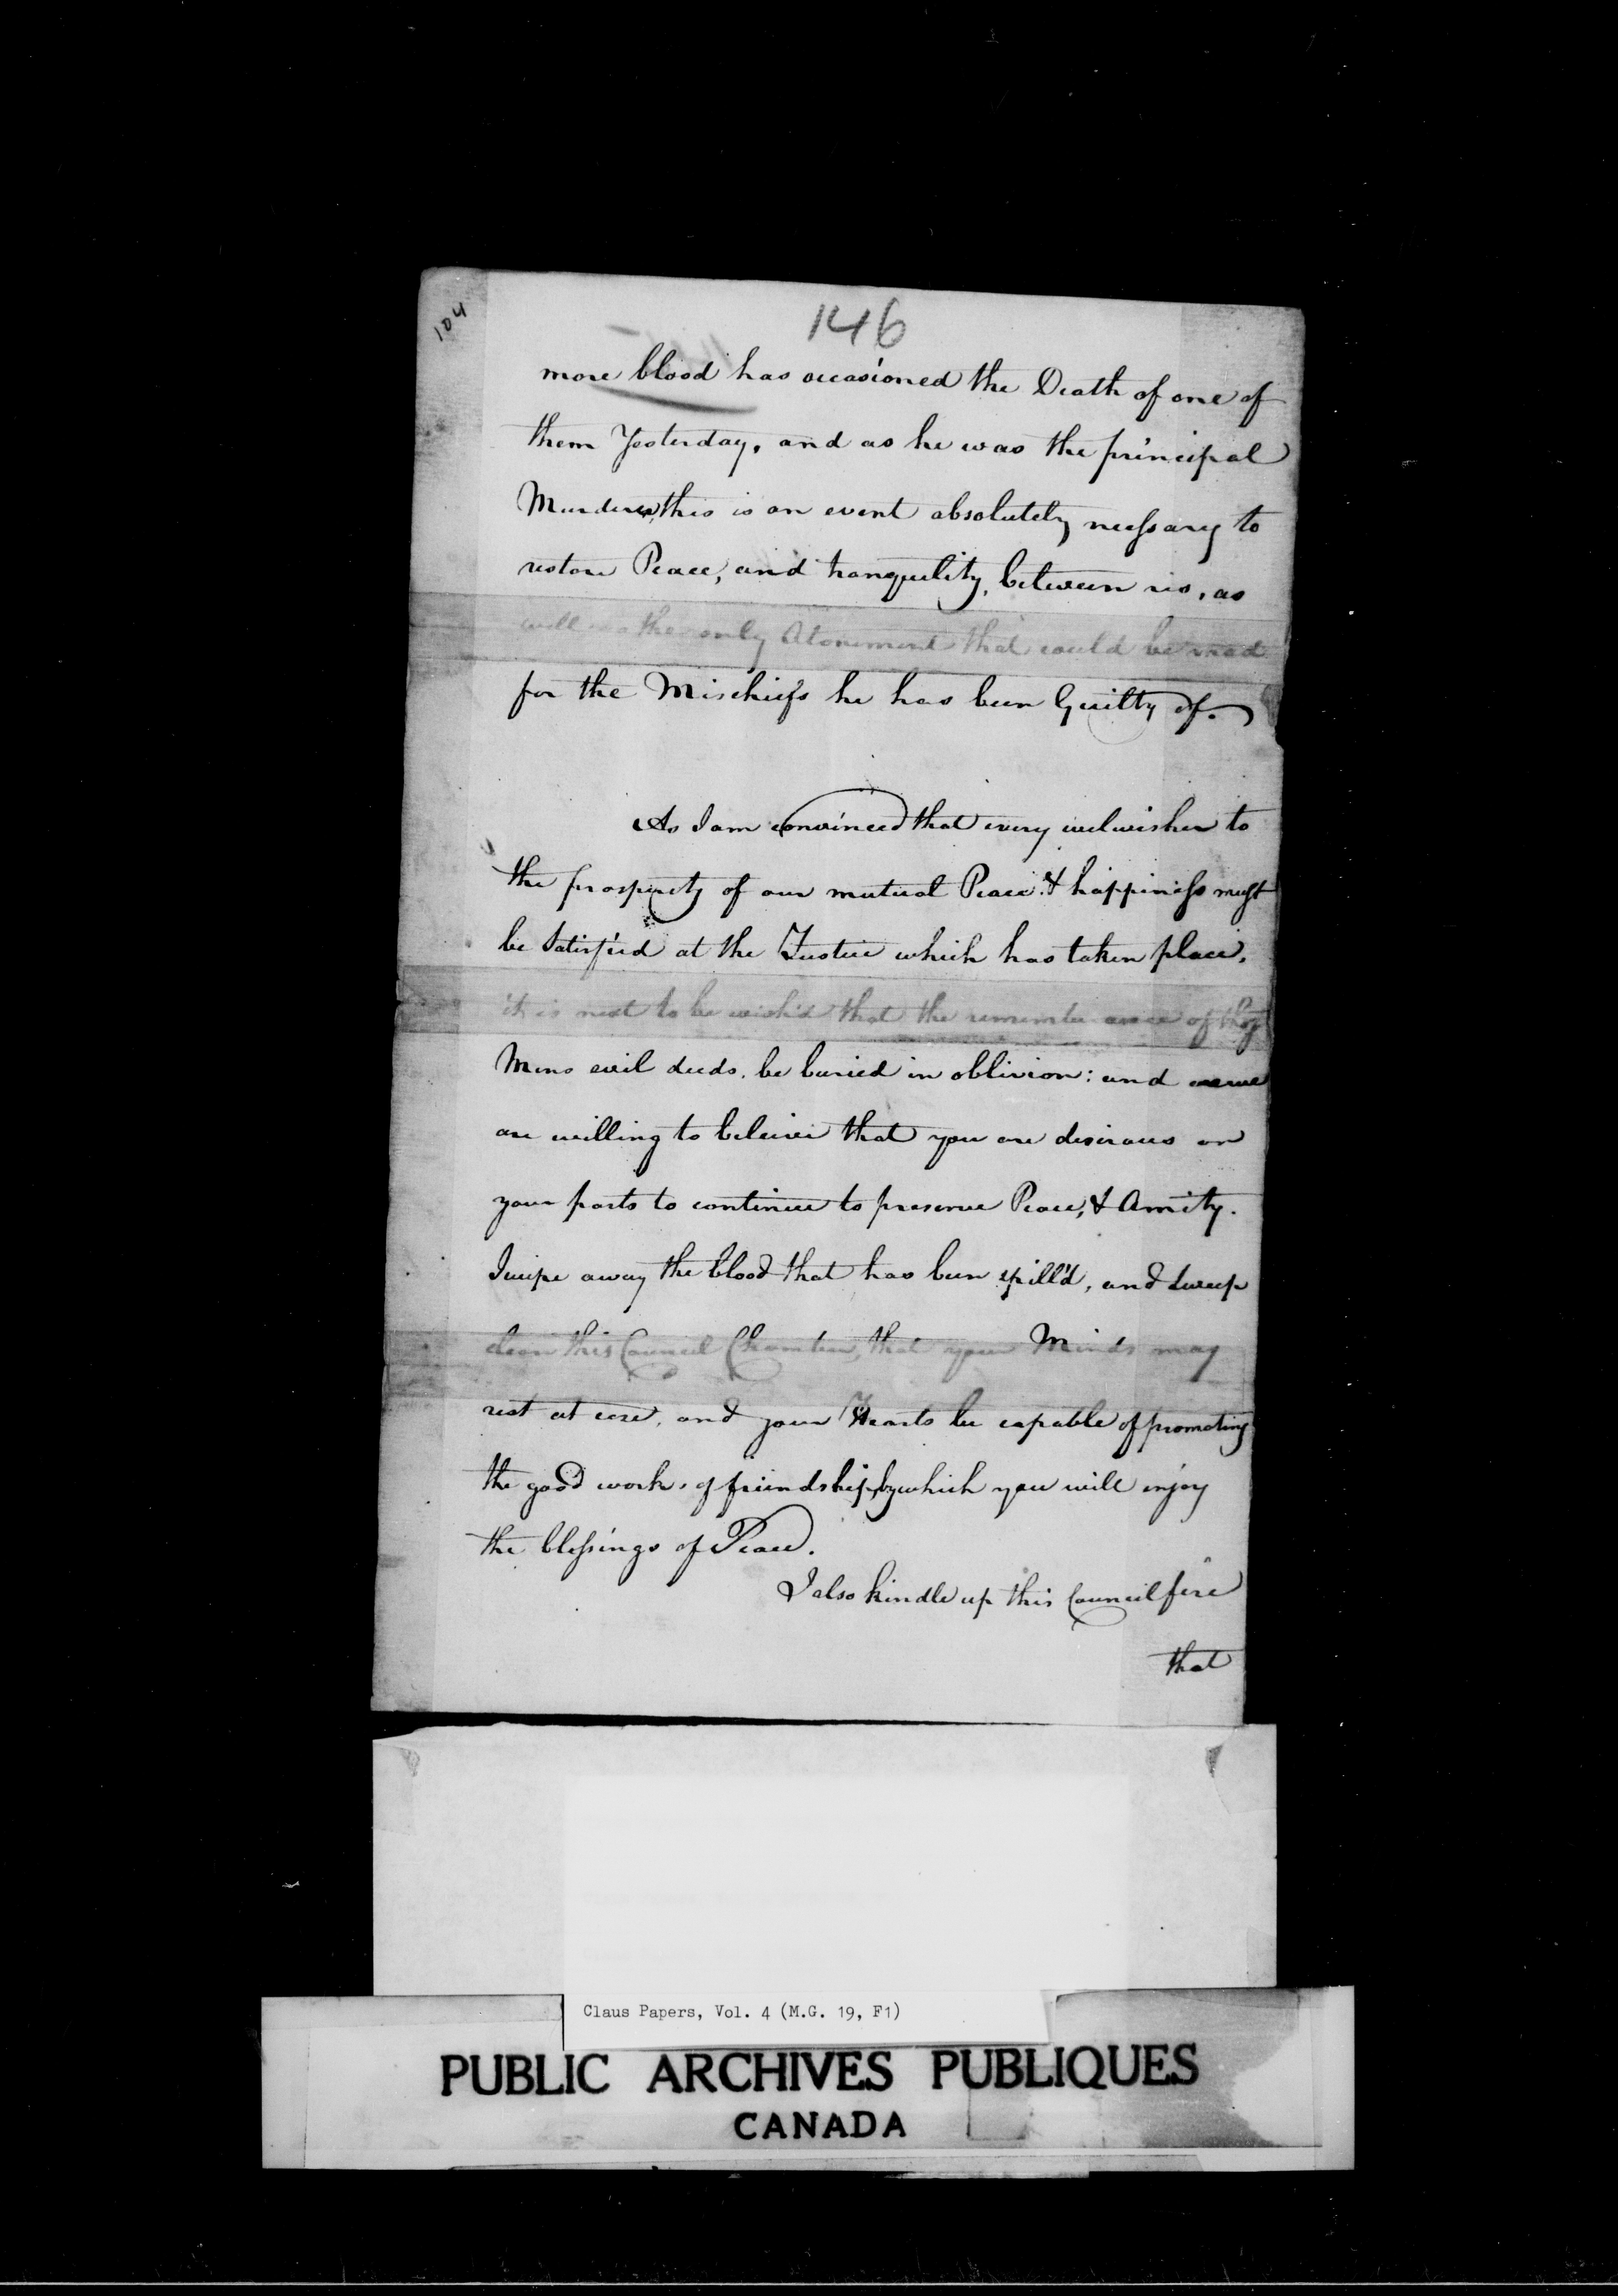 104
146
more blood has occasioned the Death of one of
them Yesterday, and as he was the principal
Murderer, this is an event absolutely necessary to
restore Peace, and tranquility, between us, as
well as the only Atonement that could be mad
for the Mischiefs he has been Guilty of.
As I am convinced that every welwisher to
the prosperity of our mutual Peace & happiness must
be Satisfied at the Justice which has taken place,
it is next to be wish'd that the remembrance of those
Mens evil deeds, be buried in oblivion: and as we
are willing to beleive that you are desirous on
your parts to continue to preserve Peace, & Amity.
I wipe away the blood that has been spill'd, and sweep
clean this Council Chamber, that your Minds may
rest at ease, and your Hearts be capable of promoting
the good works of friendship, by which you will injoy
the blessings of Peace.
I also kindle up this Council fire
that
Claus Papers, Vol. 4 (M.G. 19, F1)
PUBLIC ARCHIVES PUBLIQUES
CANADA